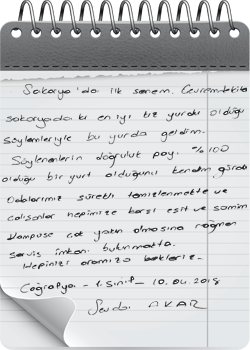 Sakarya'da ilk senem. Çevremdekile
sakaryadaki en iyi kız yurdu olduğu
söylemleriyle bu yurda geldim.
Söylenenlerin doğruluk payı %100
olduğu bir yurt olduğunu kendim gördü
Odalarımız sürekli temizlenmekte ve
çalışanlar hepimize karşı eşit ve samim
Kampüse çok yakın olmasına rağmen
servis imkanı bulunmakta.
Hepinizi aramıza bekleriz.
Coğrafya - 1. Sınıf - 10.04.2018
Sevda AKAR